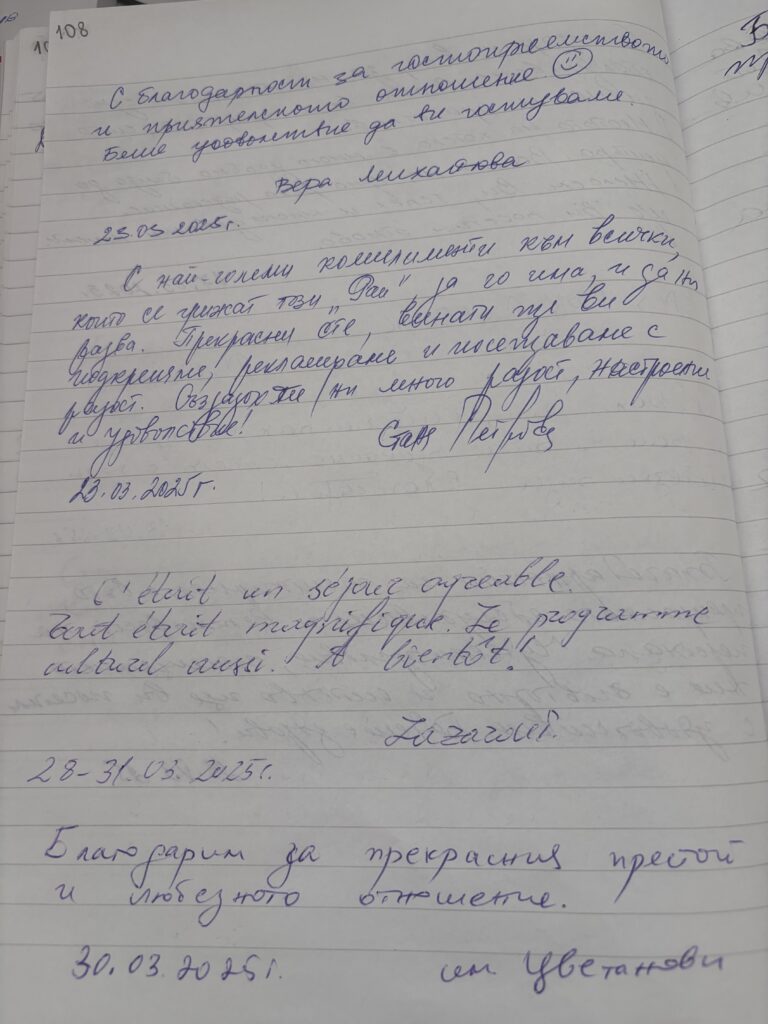 108
С благодарности за гостоприемството
и приятелското отношение ☺
Беше удоволствие да ви гостуваме.
Вера Михайлова
23.03 2025г.
С най-големи комплименти към всички,
които се грижат този "Рай" да го има, и да ни
радва. Прекрасни сте, винаги ще ви
подкрепяме, рекламираме и посещаваме с
радост. Създадохте ни много радост, настроение
и удоволствие!
Петрова
23.03.2025г.
C'était un séjour agréable.
Tout était magnifique. Le programme
culturel aussi. A bientôt!
28-31.03.2025г.
Благодарим за прекрасния престой
и любезното отношение.
30.03.2025г.
сем. Цветанови